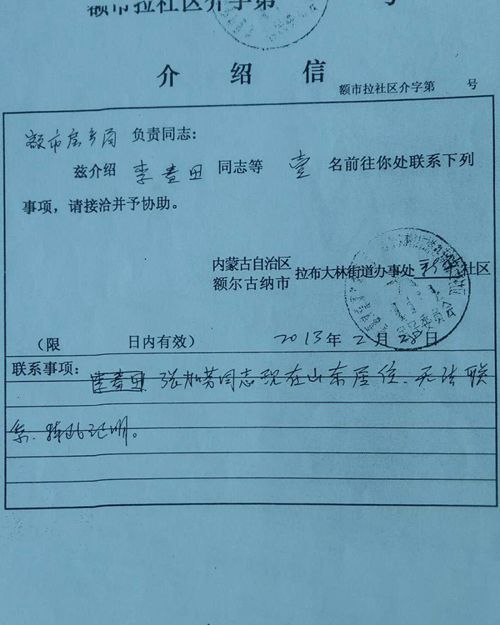 额市拉社区介字第 号
介绍信
额市拉社区介字第 号
额市房产局 负责同志：
兹介绍 李 同志等 壹 名前往你处联系下列
事项，请接洽并予协助。
内蒙古自治区
额尔古纳市 拉布大林街道办事处 社区
（限 日内有效） 2013年2月28日
联系事项： 张 芳同志现在山东居住、无法联
系、特此证明。